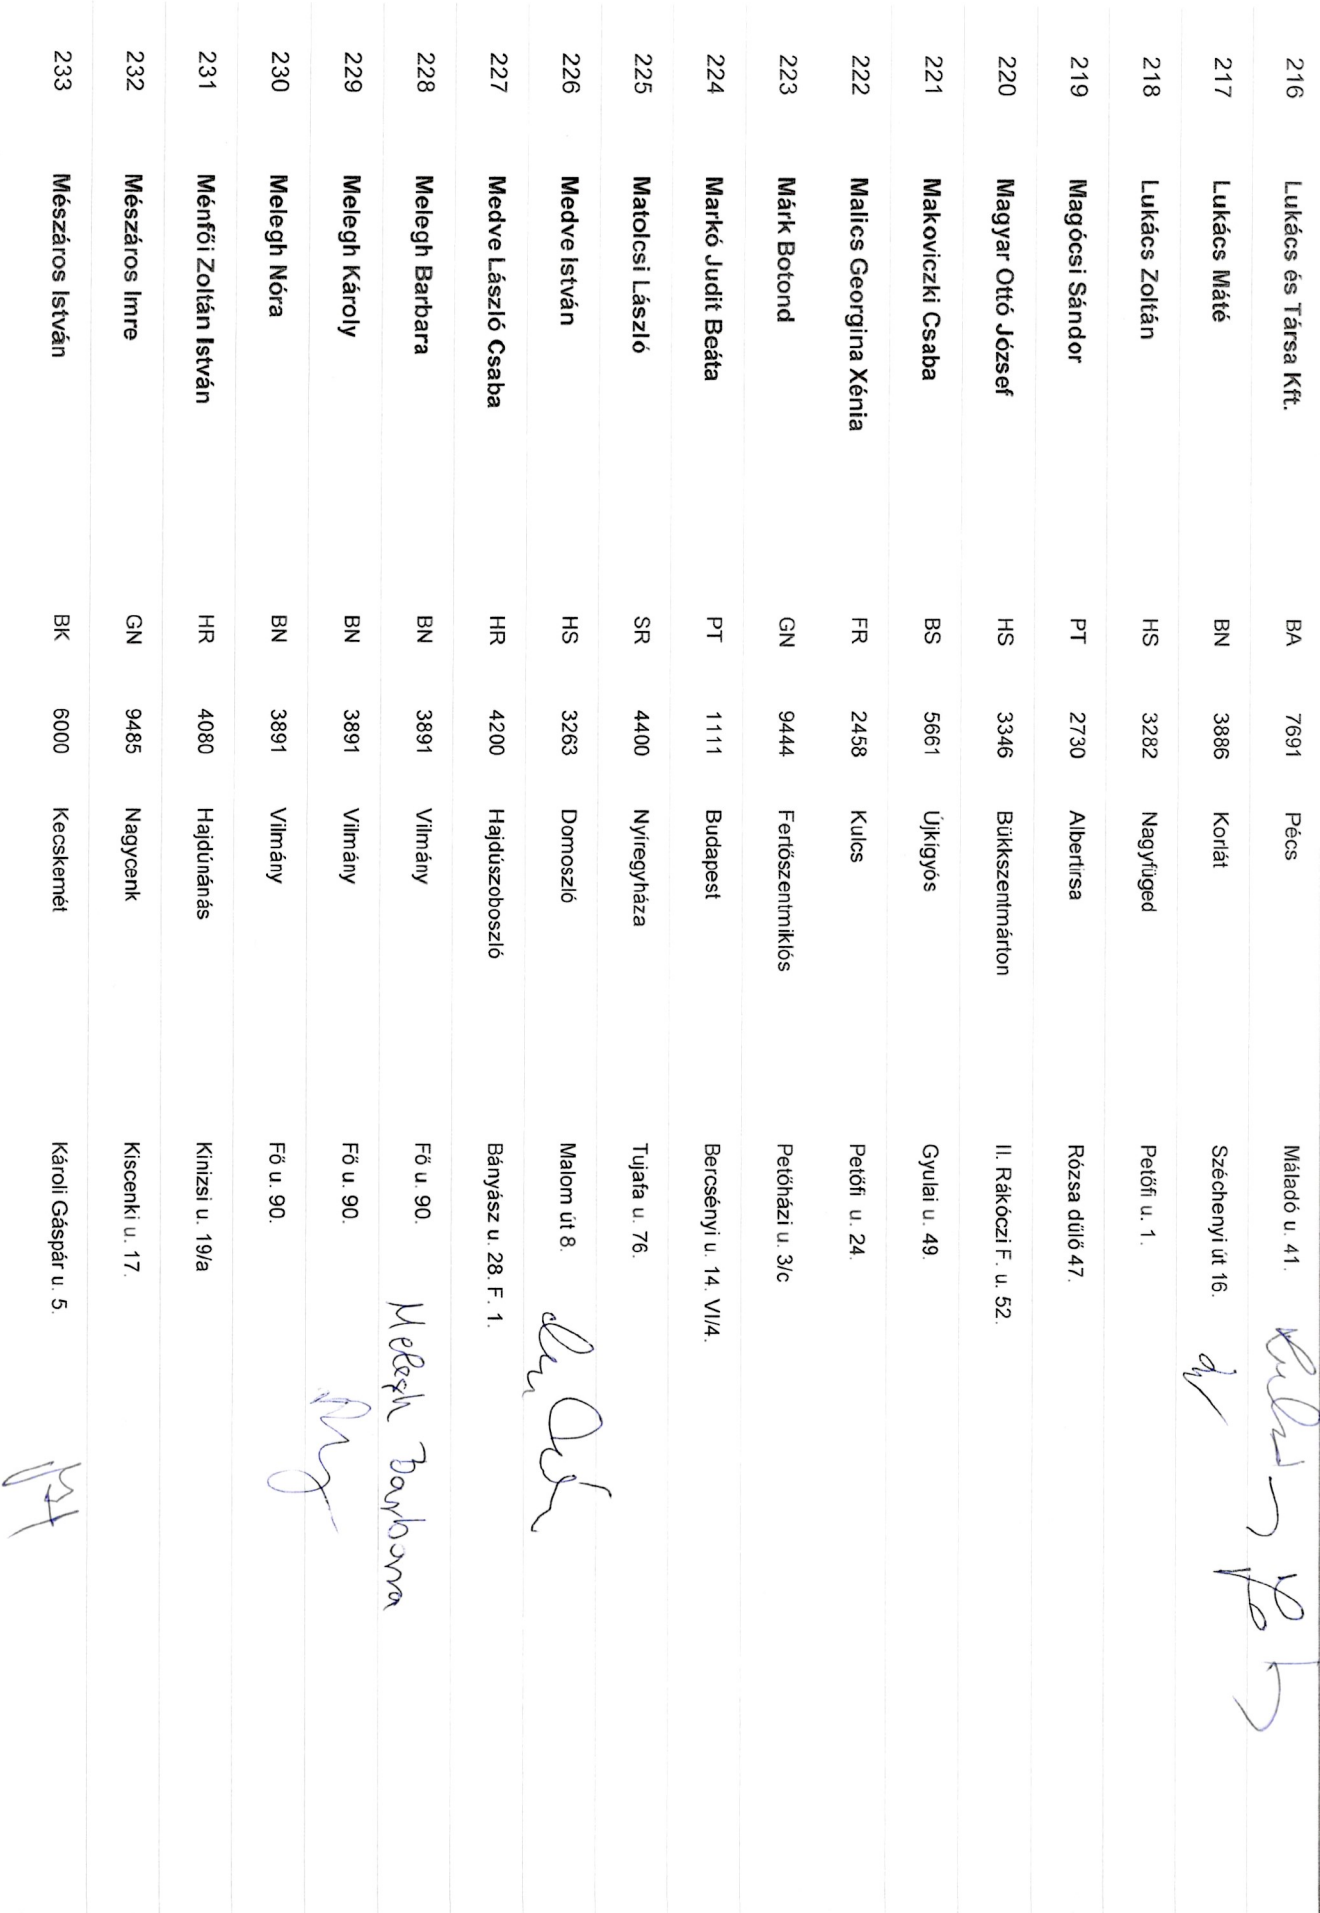 216 Lukács és Társa Kft. BA 7691 Pécs Máladó u. 41.
217 Lukács Máté BN 3886 Korlát Széchenyi út 16.
218 Lukács Zoltán HS 3282 Nagyfüged Petőfi u. 1.
219 Magócsi Sándor PT 2730 Albertirsa Rózsa dülő 47.
220 Magyar Ottó József HS 3346 Bükkszentmárton II. Rákóczi F. u. 52.
221 Makoviczki Csaba BS 5661 Újkígyós Gyulai u. 49.
222 Malics Georgina Xénia FR 2458 Kulcs Petőfi u. 24.
223 Márk Botond GN 9444 Fertőszentmiklós Petőházi u. 3/c
224 Markó Judit Beáta PT 1111 Budapest Bercsényi u. 14. VI/4.
225 Matolcsi László SR 4400 Nyíregyháza Tujafa u. 76.
226 Medve István HS 3263 Domoszló Malom út 8.
227 Medve László Csaba HR 4200 Hajdúszoboszló Bányász u. 28. F. 1.
228 Melegh Barbara BN 3891 Vilmány Fő u. 90. Melegh Barbara
229 Melegh Károly BN 3891 Vilmány Fő u. 90.
230 Melegh Nóra BN 3891 Vilmány Fő u. 90.
231 Ménfői Zoltán István HR 4080 Hajdúnánás Kinizsi u. 19/a
232 Mészáros Imre GN 9485 Nagycenk Kiscenki u. 17.
233 Mészáros István BK 6000 Kecskemét Károli Gáspár u. 5.